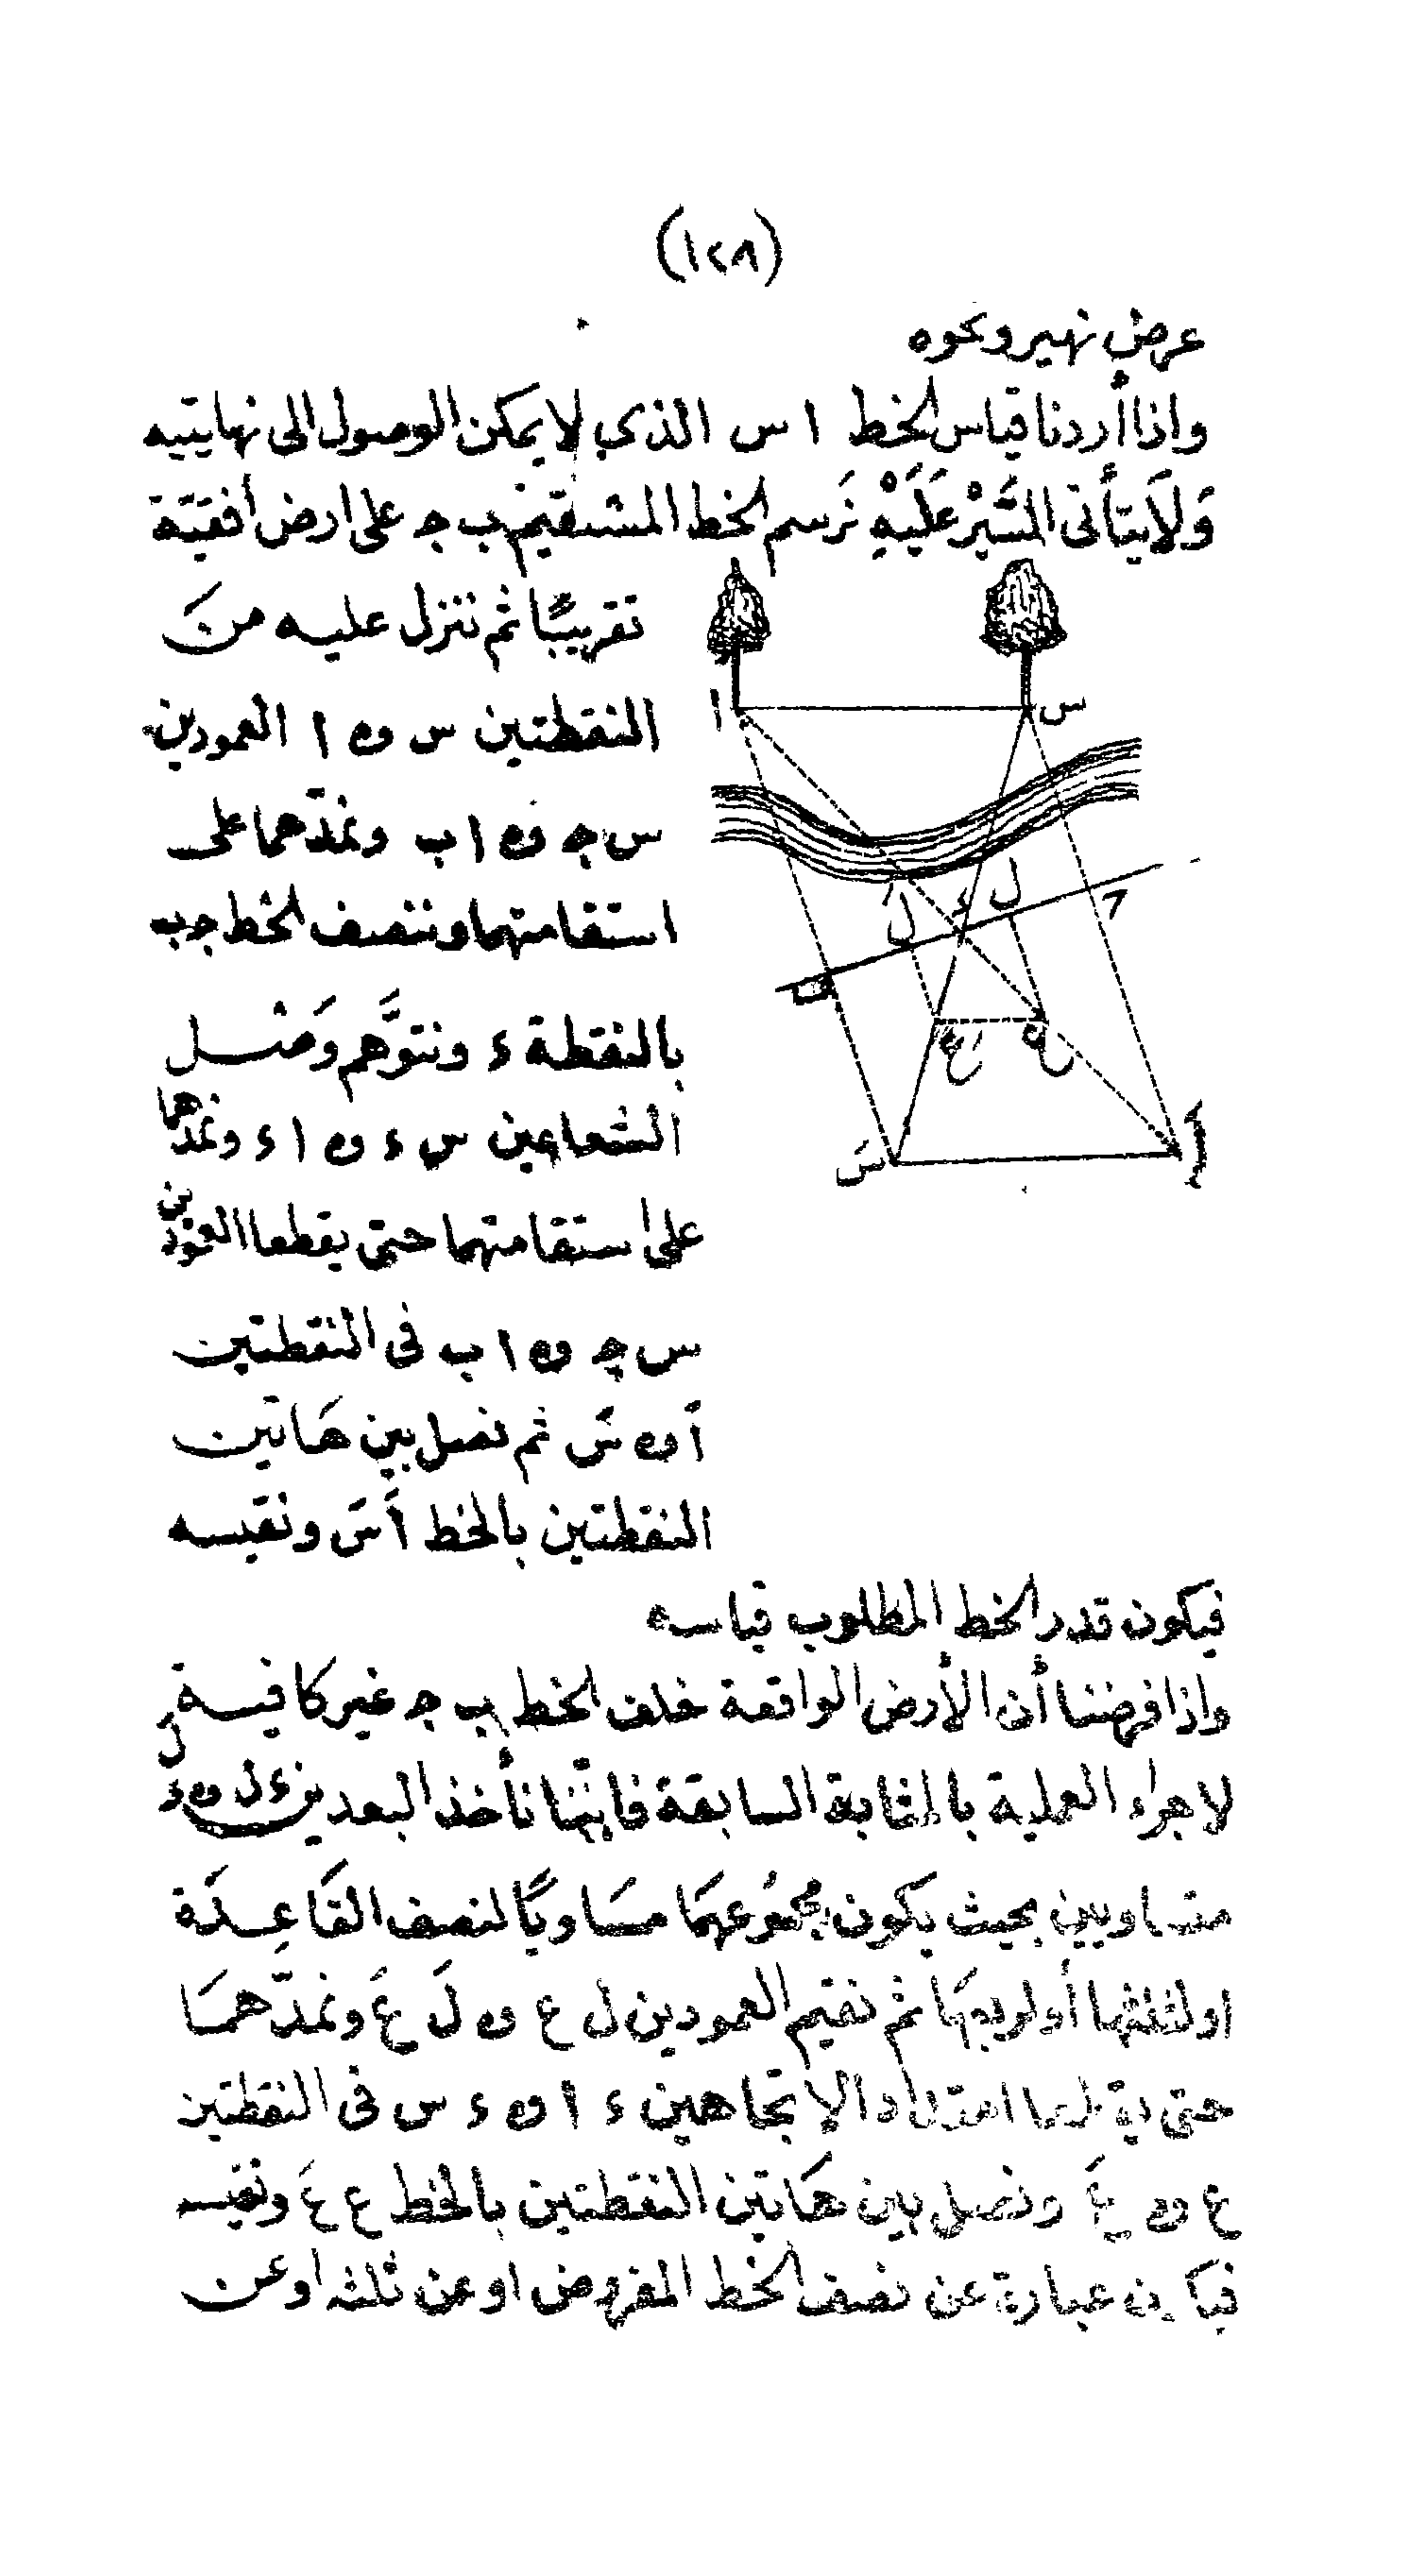 (١٢٨)
عرض نهير ونحوه
واذا أردنا قياس الخط ا س الذي لا يمكن الوصول الى نهايتيه
وَلَا يتأتى السَّيْر عَلَيْهِ نَرسم الخط المستقيم ب ج على ارض أفقيّة
تقريبًا ثم ننزل عليه منَ
النقطتين س و ا العمودين
س ج و ا ب ونمدّهما على
استقامتهما وننصف الخط ج ب
بالنقطة ء ونتوَّهم وَصْل
الشعاعين س ء و ا ء ونمدّهما
على استقامتهما حتى يقطعا العمودين
س ج و ا ب فى النقطتين
اَ و سَ ثم نصل بين هَاتين
النقطتين بالخط اَ سَ ونقيسه
فيكون قدر الخط المطلوب قياسه
واذا فرضنا أن الأرض الواقعة خلف الخط ب ج غير كافية
لاجراء العملية بالمثابة السابقة فاننا نأخذ البعدين ء ل و ء لَ
متساويين بحيث يكون مجموعهمَا مسَاويًا لنصف القَاعِدَة
او لثلثها أو لربعهَا ثم نقيم العمودين ل ع و لَ عَ ونمدّهمَا
حتى يقطعا امتداد الاتجاهين ء ا و ء س فى النقطتين
ع و عَ ونصل بين هَاتين النقطتين بالخط ع عَ ونقيسه
فيكون عبارة عن نصف الخط المفروض او عن ثلثه او عن
ا
س
ل
ء
لَ
ع
سَ